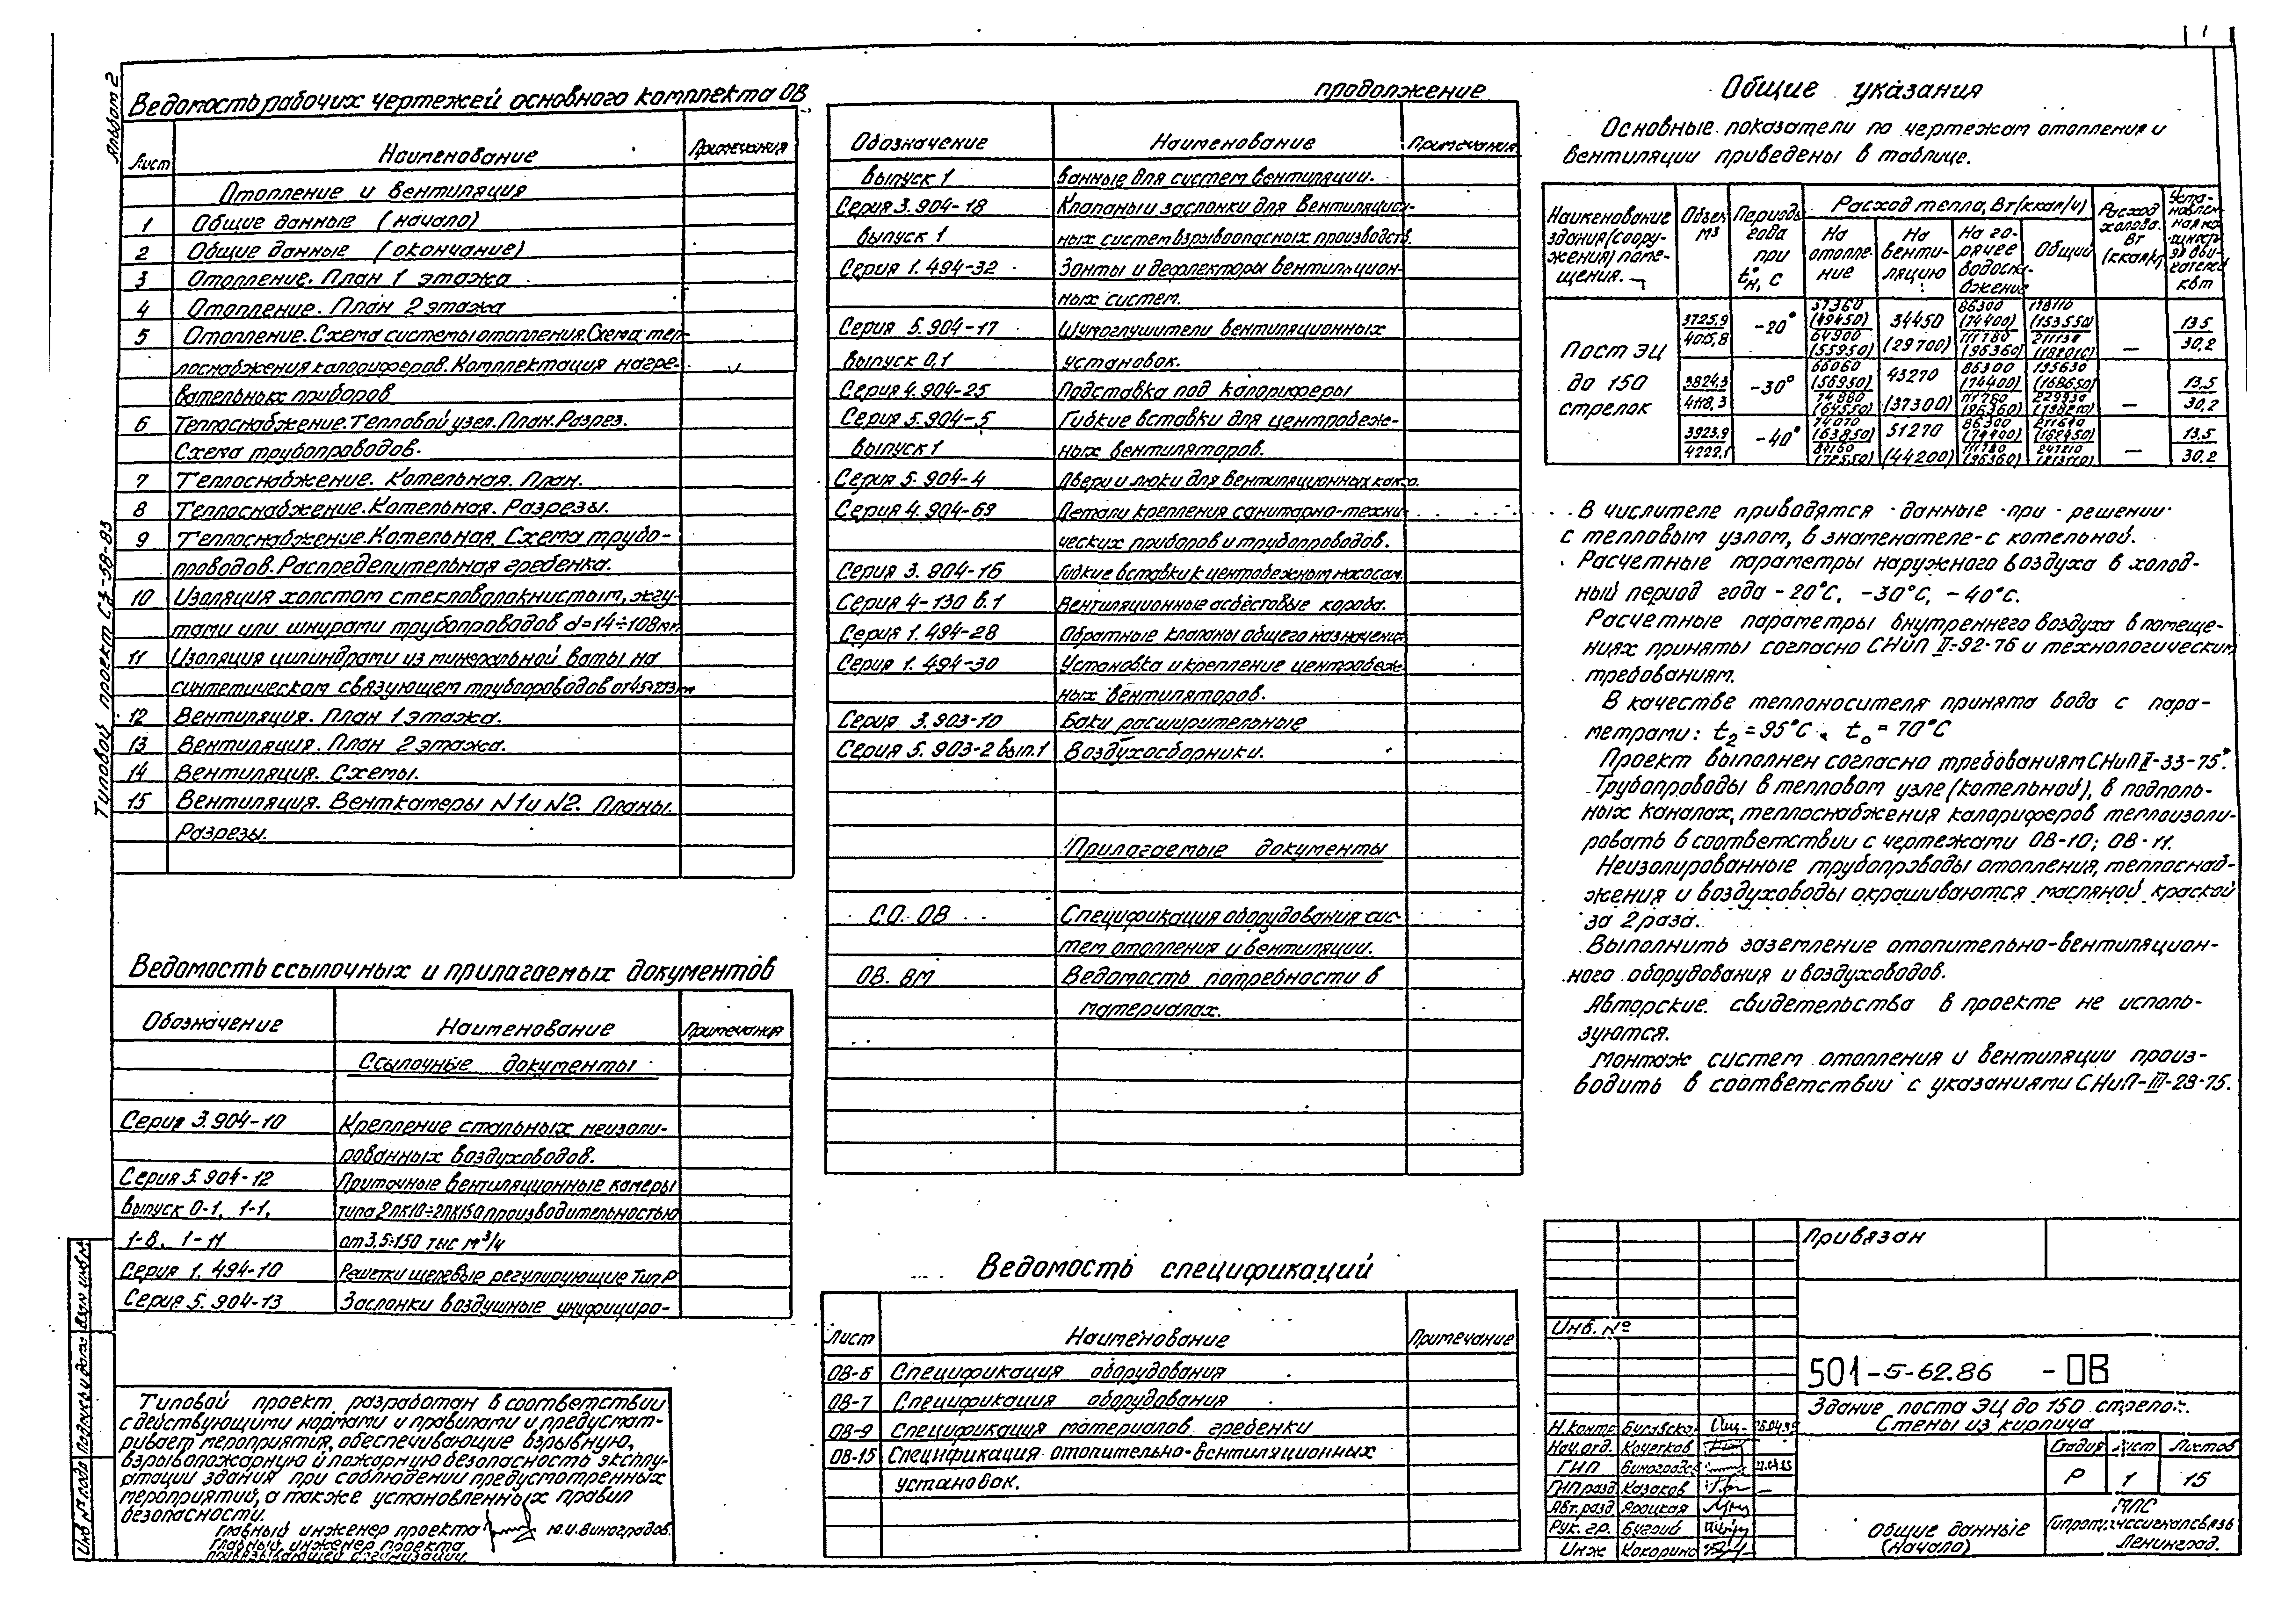 1
Альбом 2
Типовой проект
Ведомость рабочих чертежей основного комплекта ОВ
Лист Наименование Примечания
Отопление и вентиляция
1 Общие данные (начало)
2 Общие данные (окончание)
3 Отопление. План 1 этажа
4 Отопление. План 2 этажа
5 Отопление. Схема системы отопления. Схема теп-
лоснабжения калориферов. Комплектация нагре-
вательных приборов
6 Теплоснабжение. Тепловой узел. План. Разрез.
Схема трубопроводов.
7 Теплоснабжение. Котельная. План.
8 Теплоснабжение. Котельная. Разрезы.
9 Теплоснабжение. Котельная. Схема трубо-
проводов. Распределительная гребенка.
10 Изоляция холстом стекловолокнистым, жгу-
тами или шнурами трубопроводов d=14÷108мм
11 Изоляция цилиндрами из минеральной ваты на
синтетическом связующем трубопроводов
12 Вентиляция. План 1 этажа.
13 Вентиляция. План 2 этажа.
14 Вентиляция. Схемы.
15 Вентиляция. Венткамеры N1 и N2. Планы.
Разрезы.
Ведомость ссылочных и прилагаемых документов
Обозначение Наименование Примечания
Ссылочные документы
Серия 3.904-10 Крепление стальных неизоли-
рованных воздуховодов.
Серия 5.904-12 Приточные вентиляционные камеры
выпуск 0-1, 1-1, типа 2ПК10÷2ПК150 производительностью
1-8, 1-11 от 3,5÷150 тыс м³/ч
Серия 1.494-10 Решетки щелевые регулирующие Тип Р
Серия 5.904-13 Заслонки воздушные унифициро-
Типовой проект разработан в соответствии
с действующими нормами и правилами и предусмат-
ривает мероприятия, обеспечивающие взрывную,
взрывопожарную и пожарную безопасность эксплу-
атации здания при соблюдении предусмотренных
мероприятий, а также установленных правил
безопасности.
Главный инженер проекта Ю.И. Виноградов.
Главный инженер проекта
привязывающей организации
Инв № подл Подпись и дата Взам инв №
продолжение
Обозначение Наименование Примечания
выпуск 1 ванные для систем вентиляции.
Серия 3.904-18 Клапаны и заслонки для вентиляцион-
выпуск 1 ных систем взрывоопасных производств.
Серия 1.494-32 Зонты и дефлекторы вентиляцион-
ных систем.
Серия 5.904-17 Шумоглушители вентиляционных
выпуск 0,1 установок.
Серия 4.904-25 Подставка под калориферы
Серия 5.904-5 Гибкие вставки для центробеж-
выпуск 1 ных вентиляторов.
Серия 5.904-4 Двери и люки для вентиляционных
Серия 4.904-69 Детали крепления санитарно-техни-
ческих приборов и трубопроводов.
Серия 3.904-15 Гибкие вставки к центробежным насосам.
Серия 4-130 в.1 Вентиляционные асбестовые короба.
Серия 1.494-28 Обратные клапаны общего назначения
Серия 1.494-30 Установка и крепление центробеж-
ных вентиляторов.
Серия 3.903-10 Баки расширительные
Серия 5.903-2 вып.1 Воздухосборники.
Прилагаемые документы
СО. ОВ Спецификация оборудования сис-
тем отопления и вентиляции.
ОВ. ВМ Ведомость потребности в
материалах.
Ведомость спецификаций
Лист Наименование Примечание
ОВ-6 Спецификация оборудования
ОВ-7 Спецификация оборудования
ОВ-9 Спецификация материалов гребенки
ОВ-15 Спецификация отопительно-вентиляционных
установок.
Общие указания
Основные показатели по чертежам отопления и
вентиляции приведены в таблице.
Наименование здания (соору-жения) поме-щения. Объем м³ Периоды года при tн, С Расход тепла, Вт (ккал/ч) Расход холода. Вт (ккал/ч) Уста-новлен-ная мощность эл.дви-гателей квт
На отопле-ние На венти-ляцию На го-рячее водосна-бжение Общий
Пост ЭЦ до 150 стрелок
3725,9 4015,8 -20° 34450 (29700) 86300 (74400) 111780 (96360) (153550) — 13,5 30,2
3824,3 4118,3 -30° 66060 (56950) 74880 (64550) 43270 (37300) 86300 (74400) 111780 (96360) — 13,5 30,2
3923,9 4222,1 -40° 74070 (63850) 51270 (44200) 86300 (74400) 111780 (96360) — 13,5 30,2
В числителе приводятся данные при решении
с тепловым узлом, в знаменателе - с котельной.
Расчетные параметры наружного воздуха в холод-
ный период года -20°С, -30°С, -40°С.
Расчетные параметры внутреннего воздуха в помеще-
ниях приняты согласно СНиП II-92-76 и технологическим
требованиям.
В качестве теплоносителя принята вода с пара-
метрами: t₂=95°С, t₀=70°С
Проект выполнен согласно требованиям СНиП II-33-75*.
Трубопроводы в тепловом узле (котельной), в подполь-
ных каналах, теплоснабжения калориферов теплоизоли-
ровать в соответствии с чертежами ОВ-10; ОВ-11.
Неизолированные трубопроводы отопления, теплоснаб-
жения и воздуховоды окрашиваются масляной краской
за 2 раза.
Выполнить заземление отопительно-вентиляцион-
ного оборудования и воздуховодов.
Авторские свидетельства в проекте не исполь-
зуются.
Монтаж систем отопления и вентиляции произ-
водить в соответствии с указаниями СНиП-III-28-75.
Привязан
Инв. №
501-5-62.86 -ОВ
Здание поста ЭЦ до 150 стрелок.
Стены из кирпича
Н.контр
Нач.отд. Кочетков
ГИП Виноградов
ГИП разд Казаков
Авт.разд Яроцкая
Рук. гр.
Инж
Стадия Лист Листов
Р 1 15
Общие данные
(начало)
МПС
Гипротранссигналсвязь
Ленинград.